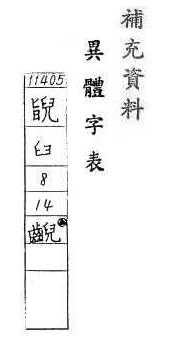 補充資料
異體字表
11405
臼
8
14
齯